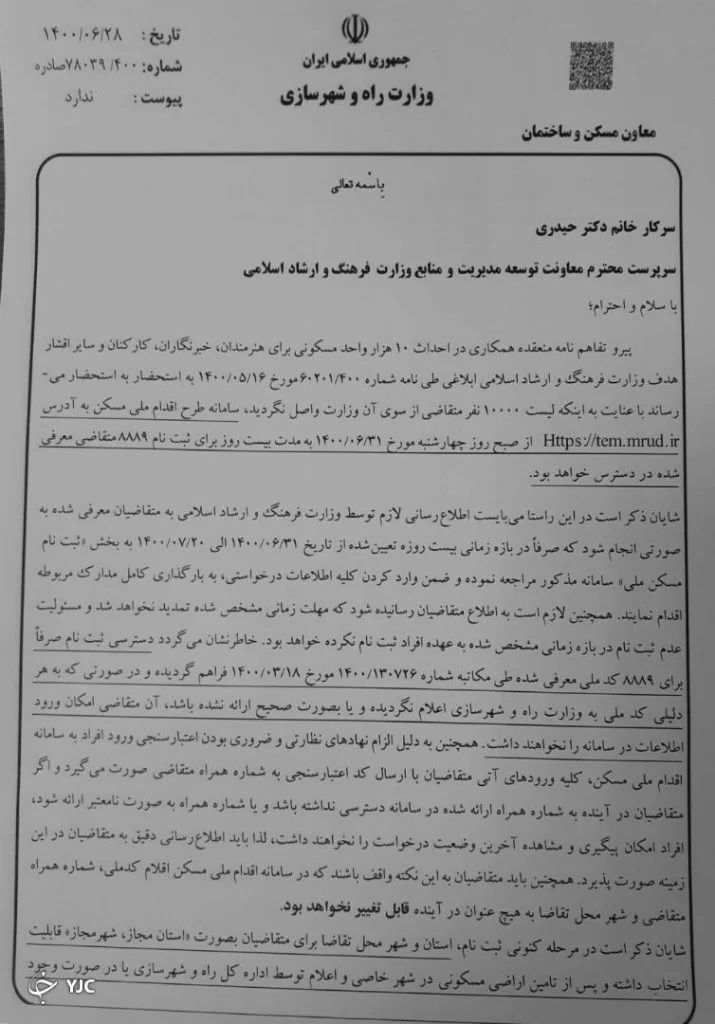 تاریخ : ۱۴۰۰/۰۶/۲۸
شماره: ۷۸۰۳۹/۴۰۰صادره
پیوست : ندارد
جمهوری اسلامی ایران
وزارت راه و شهرسازی
معاون مسکن و ساختمان
باسمه تعالی
سرکار خانم دکتر حیدری
سرپرست محترم معاونت توسعه مدیریت و منابع وزارت فرهنگ و ارشاد اسلامی
با سلام و احترام؛
پیرو تفاهم نامه منعقده همکاری در احداث ۱۰ هزار واحد مسکونی برای هنرمندان، خبرنگاران، کارکنان و سایر اقشار
هدف وزارت فرهنگ و ارشاد اسلامی ابلاغی طی نامه شماره ۶۰۲۰۱/۴۰۰مورخ ۱۴۰۰/۰۵/۱۶ به استحضار به استحضار می-
رساند با عنایت به اینکه لیست ۱۰۰۰۰ نفر متقاضی از سوی آن وزارت واصل نگردید، سامانه طرح اقدام ملی مسکن به آدرس
Https://tem.mrud.ir از صبح روز چهارشنبه مورخ ۱۴۰۰/۰۶/۳۱ به مدت بیست روز برای ثبت نام ۸۸۸۹ متقاضی معرفی
شده در دسترس خواهد بود.
شایان ذکر است در این راستا می‌بایست اطلاع‌رسانی لازم توسط وزارت فرهنگ و ارشاد اسلامی به متقاضیان معرفی شده به
صورتی انجام شود که صرفاً در بازه زمانی بیست روزه تعیین‌شده از تاریخ ۱۴۰۰/۰۶/۳۱ الی ۱۴۰۰/۰۷/۲۰ به بخش «ثبت نام
مسکن ملی» سامانه مذکور مراجعه نموده و ضمن وارد کردن کلیه اطلاعات درخواستی، به بارگذاری کامل مدارک مربوطه
اقدام نمایند. همچنین لازم است به اطلاع متقاضیان رسانیده شود که مهلت زمانی مشخص شده تمدید نخواهد شد و مسئولیت
عدم ثبت نام در بازه زمانی مشخص شده به عهده افراد ثبت نام نکرده خواهد بود. خاطرنشان می‌گردد دسترسی ثبت نام صرفاً
برای ۸۸۸۹ کد ملی معرفی شده طی مکاتبه شماره ۱۴۰۰/۱۳۰۷۲۶ مورخ ۱۴۰۰/۰۳/۱۸ فراهم گردیده و در صورتی که به هر
دلیلی کد ملی به وزارت راه و شهرسازی اعلام نگردیده و یا بصورت صحیح ارائه نشده باشد، آن متقاضی امکان ورود
اطلاعات در سامانه را نخواهند داشت. همچنین به دلیل الزام نهادهای نظارتی و ضروری بودن اعتبارسنجی ورود افراد به سامانه
اقدام ملی مسکن، کلیه ورودهای آتی متقاضیان با ارسال کد اعتبارسنجی به شماره همراه متقاضی صورت می‌گیرد و اگر
متقاضیان در آینده به شماره همراه ارائه شده در سامانه دسترسی نداشته باشد و یا شماره همراه به صورت نامعتبر ارائه شود،
افراد امکان پیگیری و مشاهده آخرین وضعیت درخواست را نخواهند داشت، لذا باید اطلاع‌رسانی دقیق به متقاضیان در این
زمینه صورت پذیرد. همچنین باید متقاضیان به این نکته واقف باشند که در سامانه اقدام ملی مسکن اقلام کدملی، شماره همراه
متقاضی و شهر محل تقاضا به هیچ عنوان در آینده قابل تغییر نخواهد بود.
شایان ذکر است در مرحله کنونی ثبت نام، استان و شهر محل تقاضا برای متقاضیان بصورت «استان مجاز، شهرمجاز» قابلیت
انتخاب داشته و پس از تامین اراضی مسکونی در شهر خاصی و اعلام توسط اداره کل راه و شهرسازی یا در صورت وجود
YJC